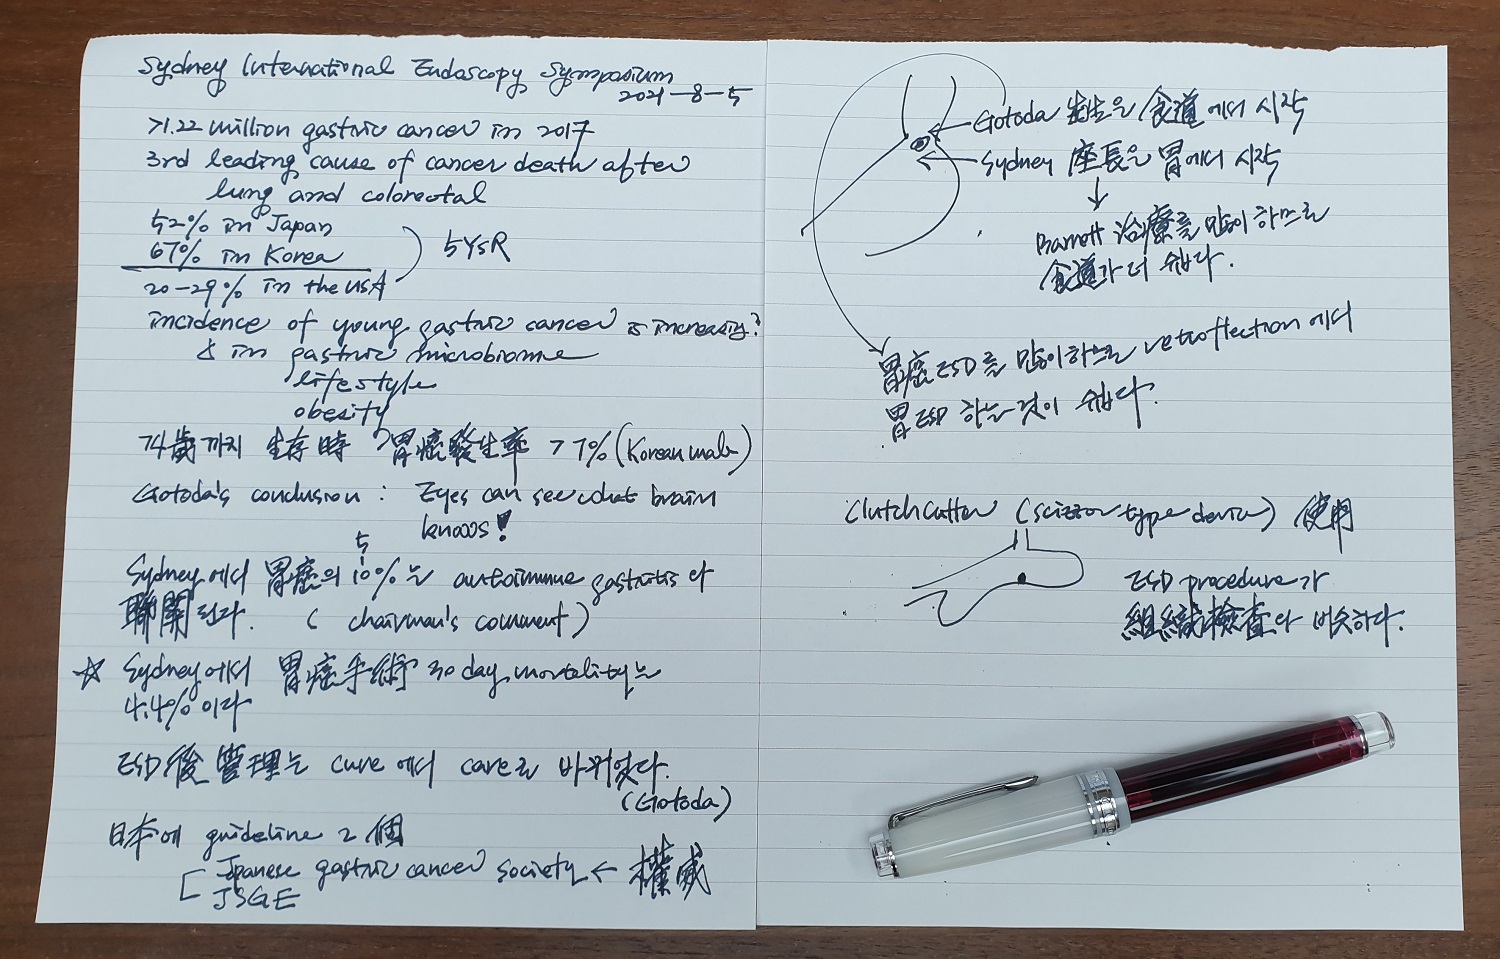 Sydney International Endoscopy Symposium
2021-8-5
>1.22 million gastric cancer in 2017
3rd leading cause of cancer death after
lung and colorectal
52% in Japan
67% in Korea
5YSR
20-29% in the USA
incidence of young gastric cancer is increasing?
& in gastric microbiome
lifestyle
obesity
74歲까지 生存時 胃癌發生率 > 7% (Korean male)
Gotoda's conclusion : Eyes can see what brain
knows!
5
Sydney에서 胃癌의 10%는 autoimmune gastritis와
聯關된다. (chairman's comment)
☆ Sydney에서 胃癌手術 30 day mortality는
4.4%이다
ESD後 管理는 cure에서 care로 바뀌었다.
(Gotoda)
日本에 guideline 2個
Japanese gastric cancer society ← 權威
JSGE
Gotoda 先生은 食道에서 시작
Sydney 座長은 胃에서 시작
Barrett 治療를 많이 하므로
食道가 더 쉽다.
胃癌 ESD를 많이 하므로 retroflection에서
胃ESD 하는 것이 쉽다.
Clutch cutter (scizzor type device) 使用
ESD procedure가
組織檢査와 비슷하다.